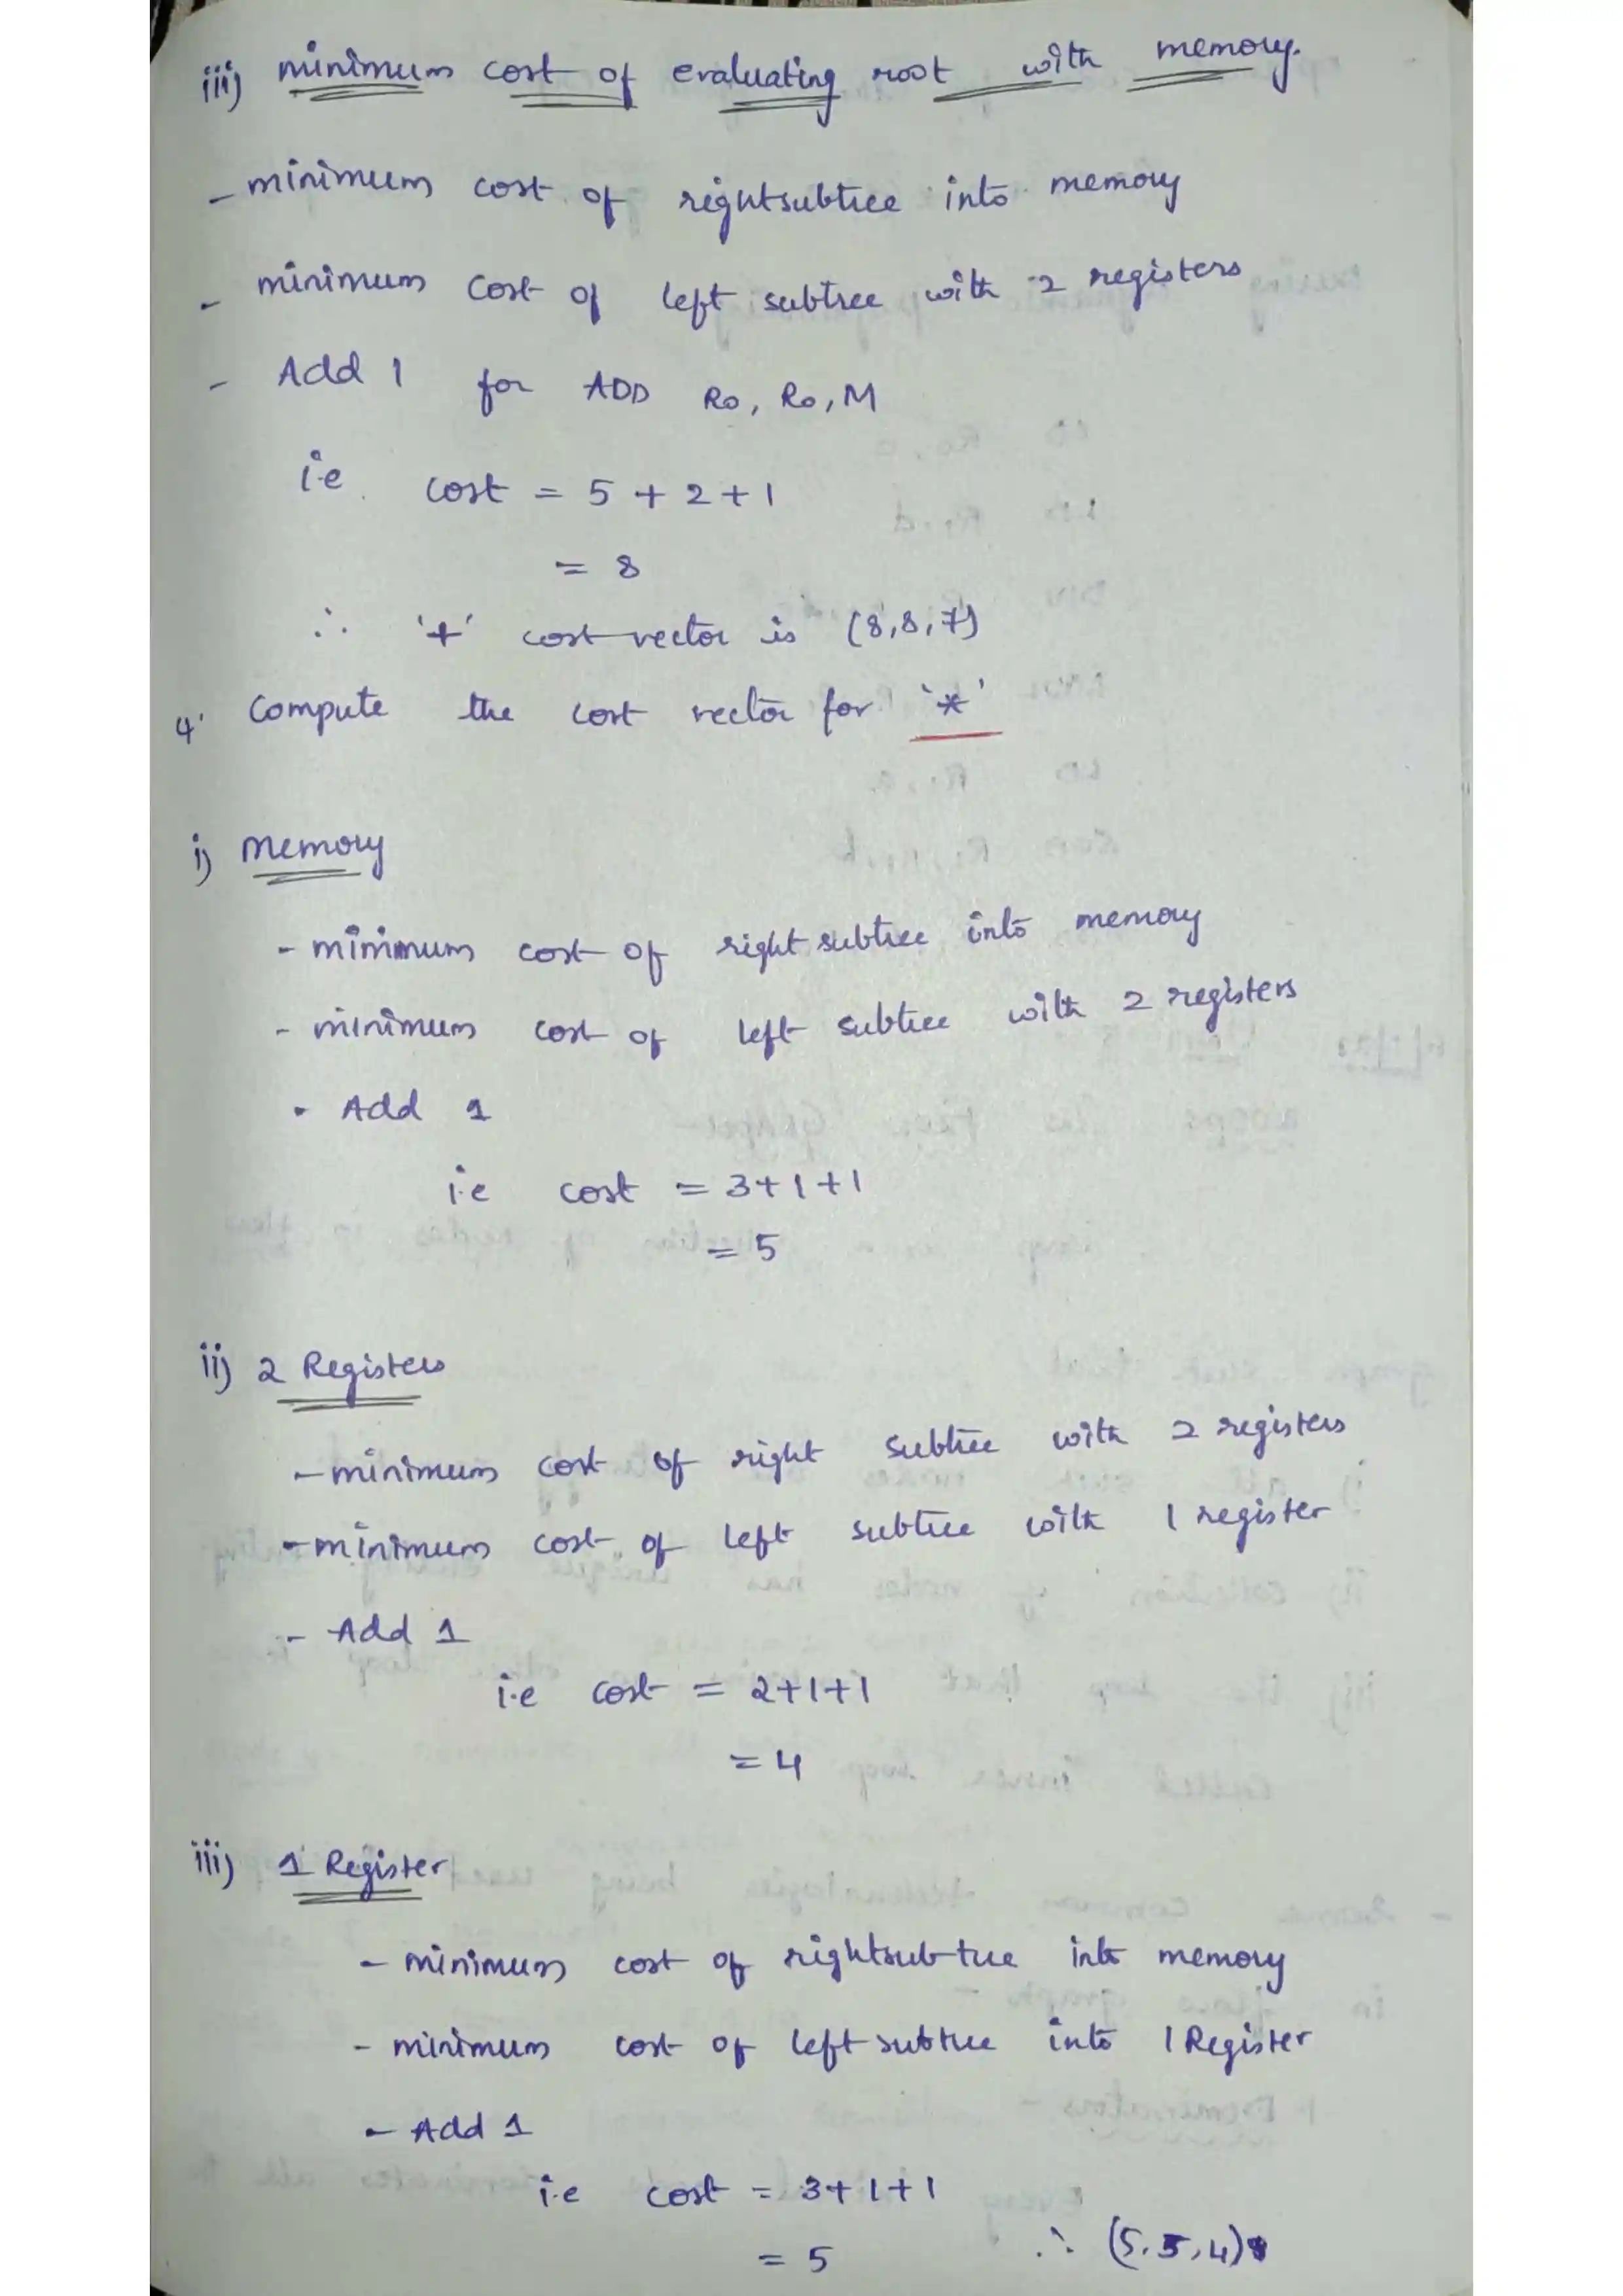 iii) minimum cost of evaluating root with memory.
- minimum cost of rightsubtree into memory
- minimum cost of left subtree with 2 registers
- Add 1 for ADD R0, R0, M
i.e cost = 5 + 2 + 1
= 8
∴ '+' cost vector is (8,8,7)
4. Compute the cost vector for '*'
i) Memory
- minimum cost of right subtree into memory
- minimum cost of left subtree with 2 registers
- Add 1
i.e cost = 3+1+1
= 5
ii) 2 Registers
- minimum cost of right subtree with 2 registers
- minimum cost of left subtree with 1 register
- Add 1
i.e cost = 2+1+1
= 4
iii) 1 Register
- minimum cost of rightsubtree into memory
- minimum cost of left subtree into 1 Register
- Add 1
i.e cost = 3+1+1
= 5 ∴ (5,5,4)